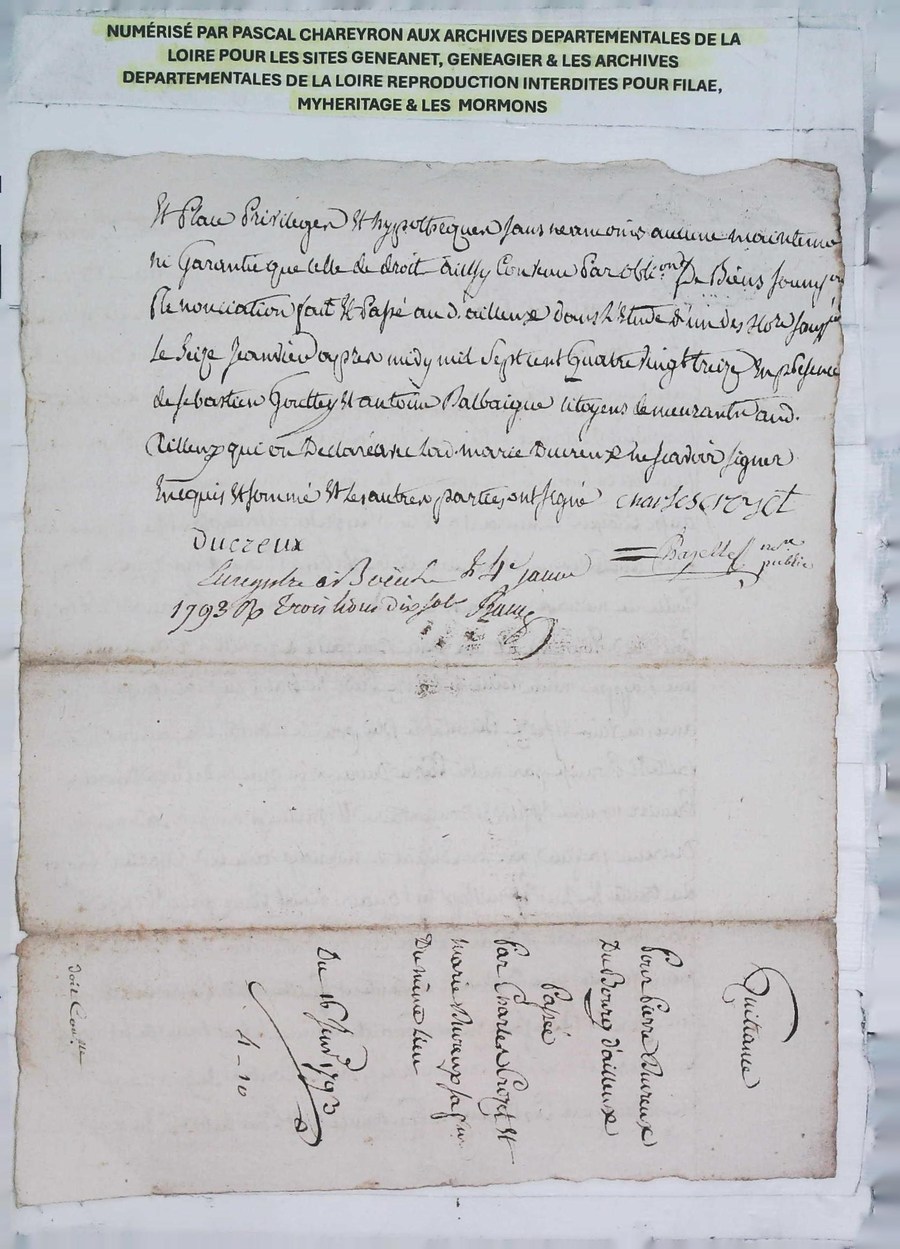 NUMÉRISÉ PAR PASCAL CHAREYRON AUX ARCHIVES DEPARTEMENTALES DE LA
LOIRE POUR LES SITES GENEANET, GENEAGIER & LES ARCHIVES
DEPARTEMENTALES DE LA LOIRE REPRODUCTION INTERDITES POUR FILAE,
MYHERITAGE & LES MORMONS
Et Place Privileger Et hypothequer sans neanmoins aucune maintenue
ni Garantie que celle de droit ainsy Convenu Par obli.on De Biens
Renonciation fait Et Passé aud. ailleux dans l'Etude d'un des Nore
Le Seize Janvier apres midy mil Sept cent Quatre Vingt treize En presence
de sebastien Gouttey Et antoine Balbaigue citoyens demeurants aud.
ailleux qui on Declaré avec lad. marie Ducreux ne scavoir signer
Enequis Et sommé Et Les autres parties ont signé charles crozet
Ducreux
Bazelle nore public
Enregistré a Boën Le janvier
1793 Rp trois livres dix sols
Quittance
Pour Pierre Ducreux
Du Bourg d'ailleux
Passée
Par Charles Crozet Et
marie Ducreux sa
Du même Lieu
Du 16 Janv. 1793
4-10